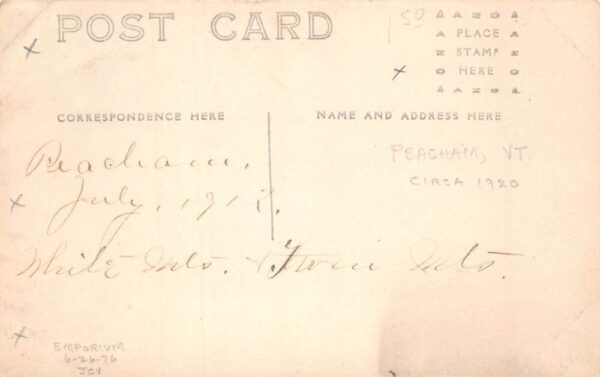 POST CARD
50
AZOA
PLACE
STAMP
HERE
AZOA
CORRESPONDENCE HERE
NAME AND ADDRESS HERE
Peacham,
July, 1912.
White Mts. & Twin Mts.
PEACHAM, VT.
CIRCA 1920
EMPORIUM
6-26-76
JCV